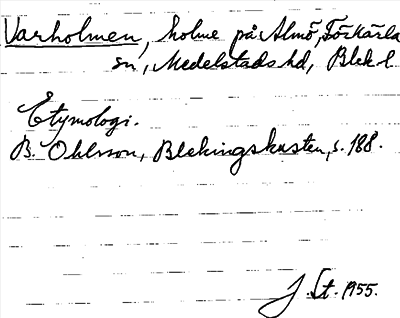 Varholmen, holme på Almö, Förkärla
sn, Medelstads hd, Blek l.
Etymologi.
B. Ohlsson, Blekingskusten, s. 188.
J. St. 1955.